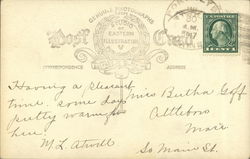 GENUINE PHOTOGRAPHS
EASTERN
ILLUSTRATING
Post Card
CORRESPONDENCE
ADDRESS
30
1917
Having a pleasant
time. some days
pretty warm
here.
M. L. Atwell
Miss Bertha Goff
Attleboro
Mass.
So Main St.